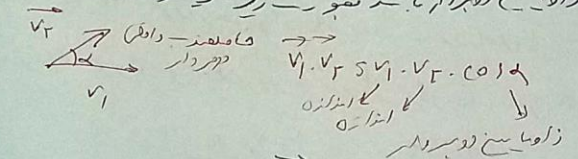 V₂
حاصلضرب داخلی
دو بردار
V₁ . V₂ = V₁ . V₂ . cos α
α
V₁
اندازه
اندازه
زاویه بین دو بردار